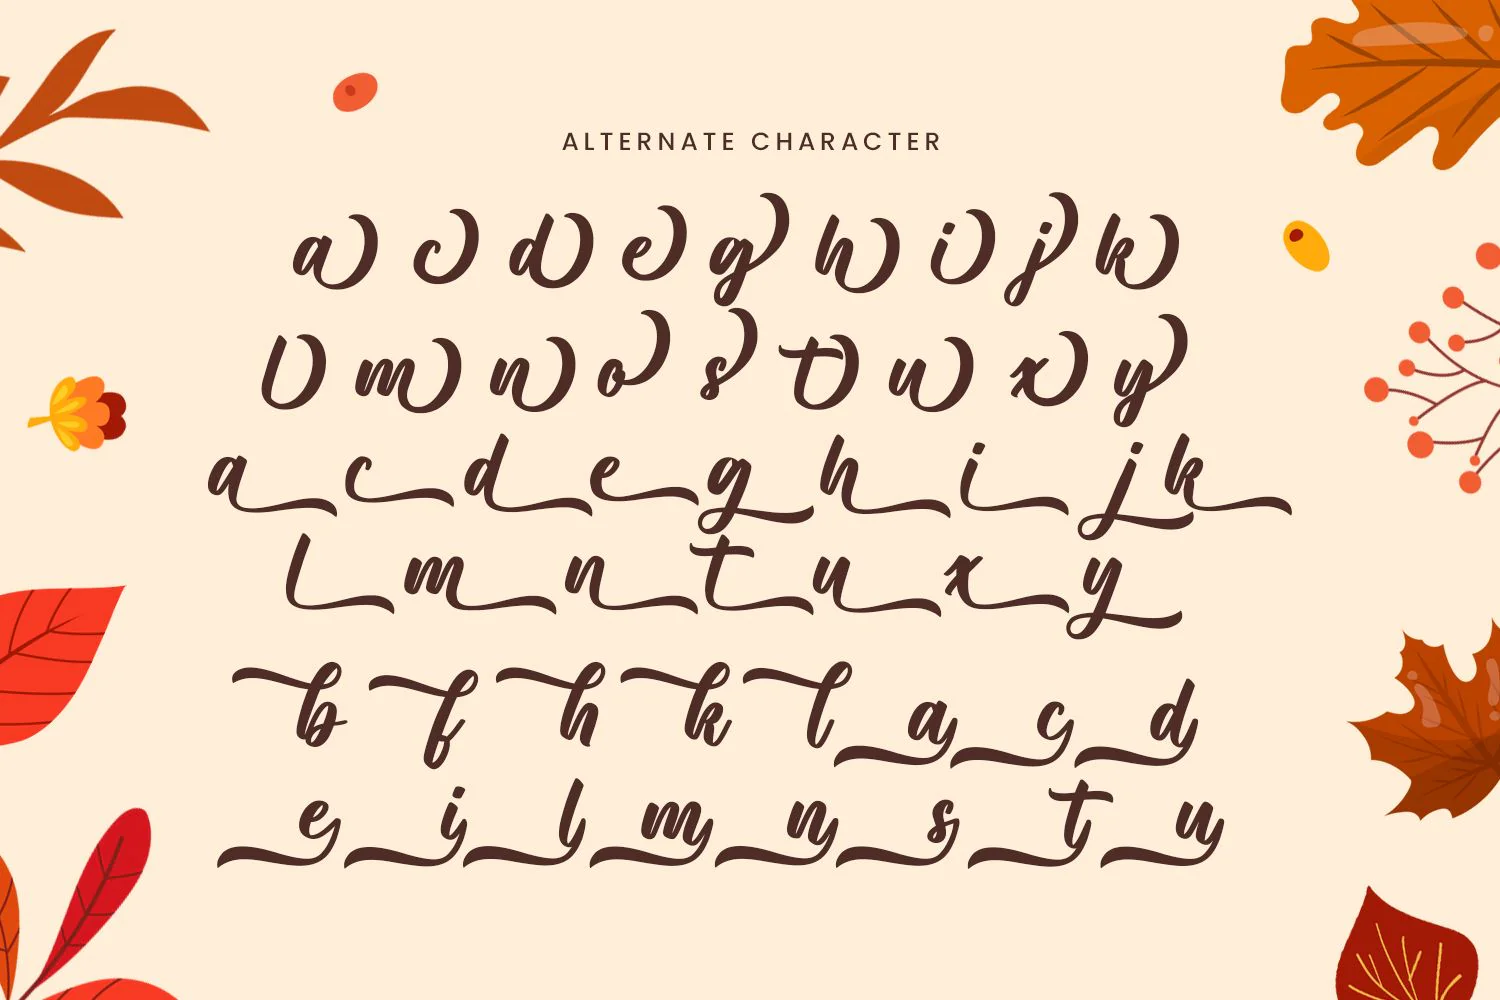 ALTERNATE CHARACTER
a c d e g h i j k
l m n o s t u x y
a c d e g h i j k
l m n t u x y
b f h k l a c d
e i l m n s t u